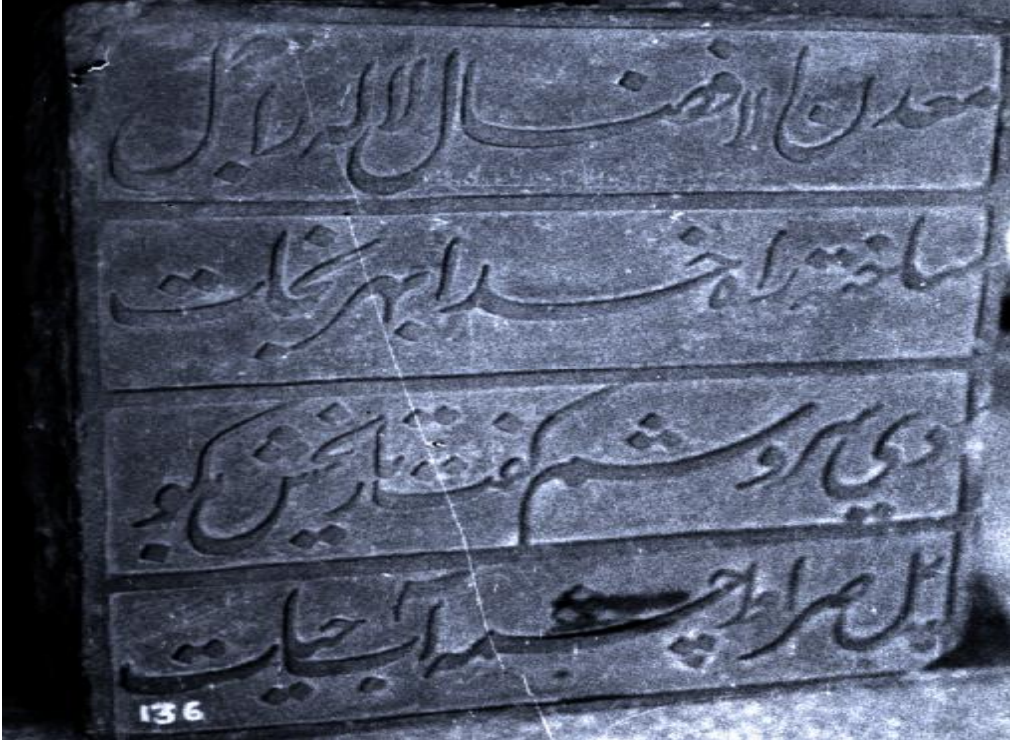 معدن الافضال لاله رابل
ساخته راه خدا بهر نجات
دی سروشم گفت تاریخش بگو
پل صراط چشمه آب حیات
136